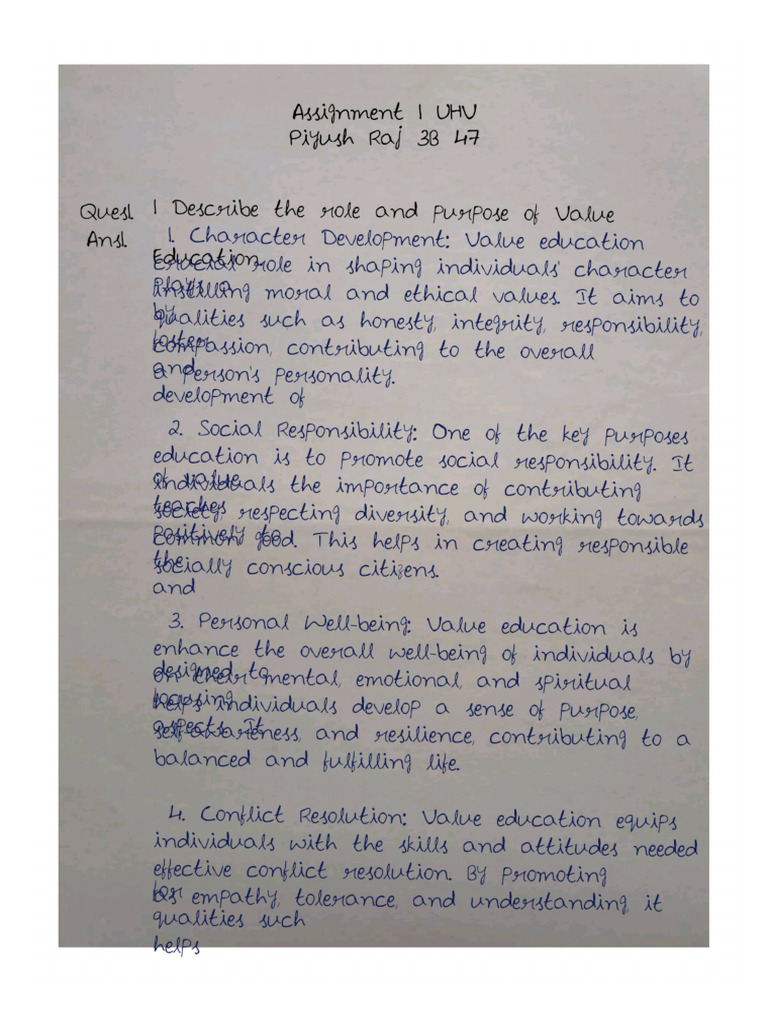 Assignment 1 UHV
Piyush Raj 3B 47
Ques1. 1 Describe the role and purpose of Value
Ans1. 1. Character Development: Value education
Education
crucial role in shaping individuals' character
plays a
instilling moral and ethical values. It aims to
by
qualities such as honesty, integrity, responsibility,
foster
compassion, contributing to the overall
and
a person's personality.
development of
2. Social Responsibility: One of the key purposes
education is to promote social responsibility. It
of value
individuals the importance of contributing
teaches
society, respecting diversity, and working towards
positively to
common good. This helps in creating responsible
the
socially conscious citizens.
and
3. Personal Well-being: Value education is
enhance the overall well-being of individuals by
designed to
on their mental, emotional, and spiritual
focusing
helps individuals develop a sense of purpose,
aspects. It
self-awareness, and resilience, contributing to a
balanced and fulfilling life.
4. Conflict Resolution: Value education equips
individuals with the skills and attitudes needed
effective conflict resolution. By promoting
for
as empathy, tolerance, and understanding, it
qualities such
helps